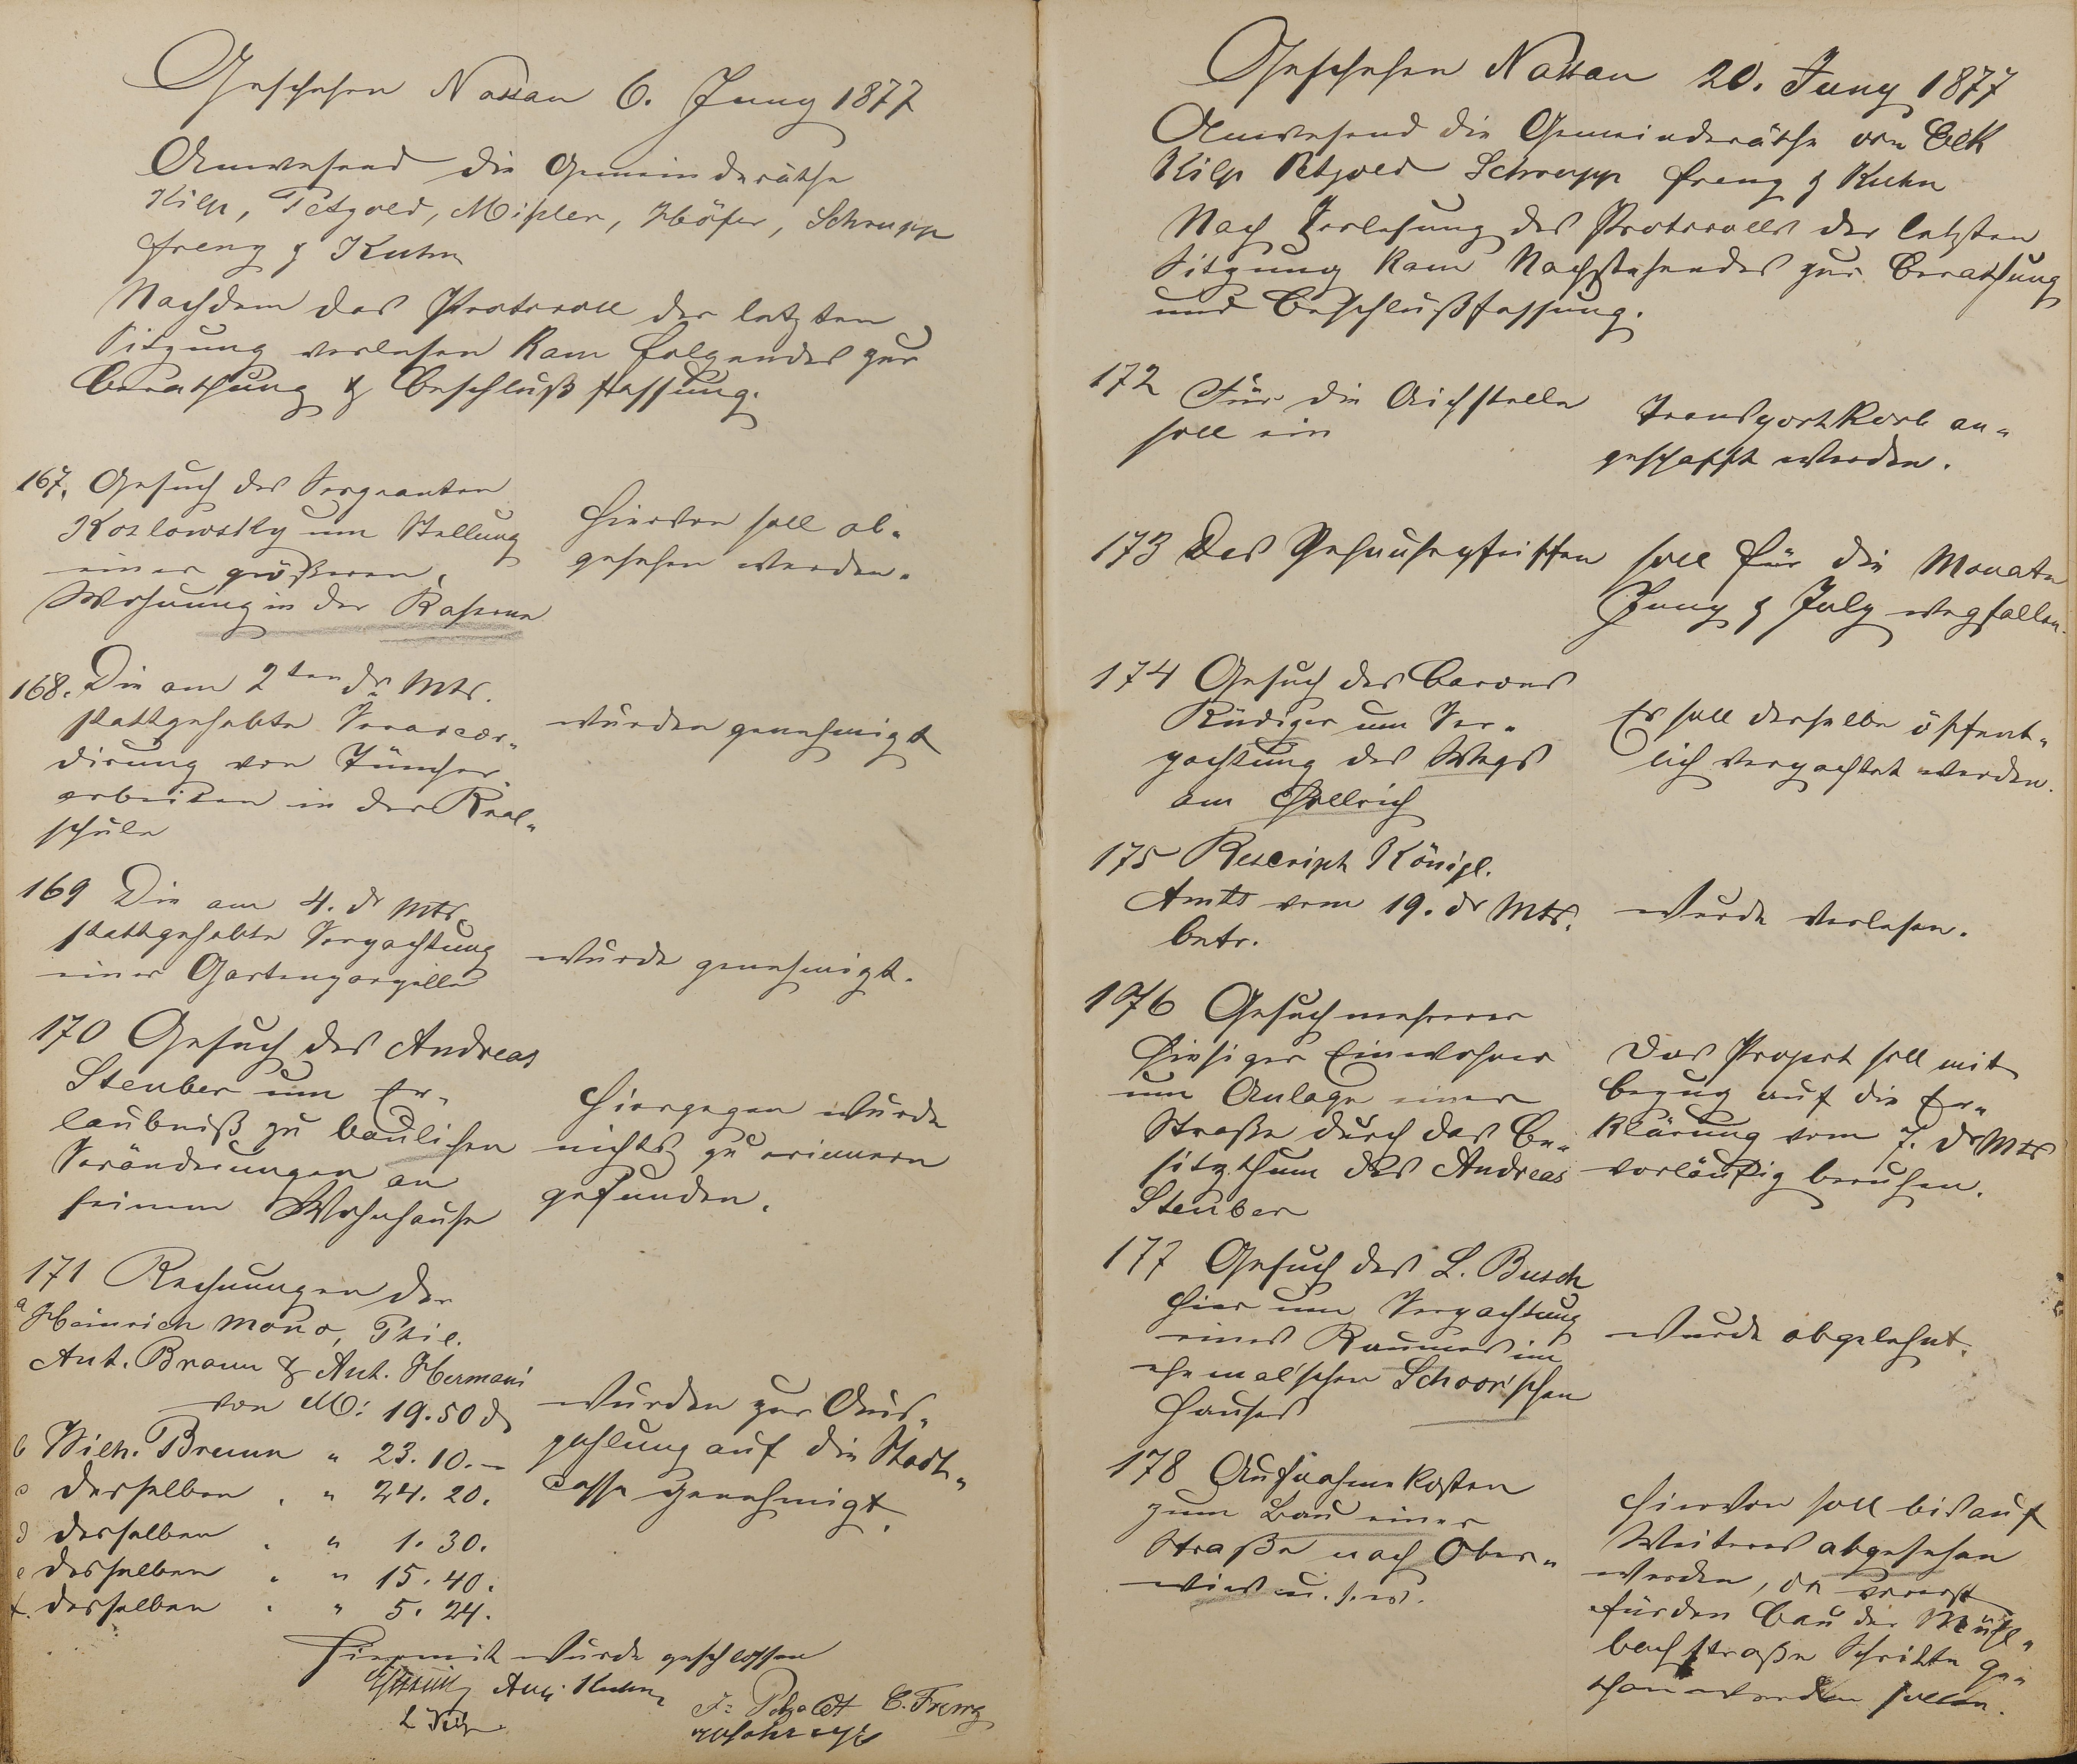 Geschehen Nassau 6. Juny 1877
Anwesend die Gemeinderäthe
Kilp, Petzold, Mißler, Höfer, Schrupp
Freng & Kuhn
Nachdem das Protocoll der letzten
Sitzung verlesen kam folgendes zur
Berathung & Beschlußfassung.
167. Gesuch des Sergeanten
Kozlowsky um Stellung
einer größeren
Wohnung in der Kaserne
Hiervon soll ab-
gesehen werden.
168. Die am 2ten ds Mts.
stattgehabte Veraccor-
dirung von Tüncher
arbeiten in der Real-
schule
wurden genehmigt
169 Die am 4. ds Mts.
stattgehabte Verpachtung
einer Gartenparzelle
wurde genehmigt.
170 Gesuch des Andreas
Steuber um Er-
laubniß zu baulichen
Veränderungen an
seinem Wohnhause
Hiergegen wurde
nichts zu erinnern
gefunden.
171 Rechnungen der
a Heinrich Mono, Phil.
Ant. Braun & Ant. Hermani
von M: 19.50 d
b Wilh. Bruun " 23.10.–
c desselben . " 24.20.
d desselben . " 1.30.
e desselben . " 15.40.
f. desselben . " 5.24.
wurden zur Aus-
zahlung auf die Stadt-
casse genehmigt.
Hiermit wurde geschlossen
Aug. Kuhn
F: Petzoldt C. Freng
L Kilp
Geschehen Nassau 20. Juny 1877
Anwesend die Gemeinderäthe von Eck
Kilp Petzold Schrupp Freng & Kuhn
Nach Verlesung des Protocolls der letzten
Sitzung kam Nachstehendes zur Berathung
und Beschlußfassung.
172 Für die Aichstelle
soll ein
Transportkorb an-
geschafft werden.
173 Das Gehausepfeiffen
soll für die Monate
Juny & July wegfallen.
174 Gesuch des Barons
Rüdiger um Ver-
pachtung des Wegs
am Hollrich
Es soll derselbe öffent-
lich verpachtet werden.
175 Rescript Königl.
Amts vom 19. ds Mts.
betr.
wurde verlesen.
176 Gesuch mehrerer
hiesiger Einwohner
um Anlage einer
Straße durch das Be-
sitzthum des Andreas
Steuber
Das Project soll mit
Bezug auf die Er-
klärung vom 7. ds Mts
vorläufig beruhen.
177 Gesuch des L. Busch
hier um Verpachtung
eines Raumes im
ehemal'schen Schoor'schen
Hauses
wurde abgelehnt.
178 Aufnahmekosten
zum Bau einer
Straße nach Ober-
wies u. s. w.
Hiervon soll bis auf
Weiteres abgesehen
werden, da vorerst
für den Bau der Mühl-
bachstraße Schritte ge-
than werden sollen.